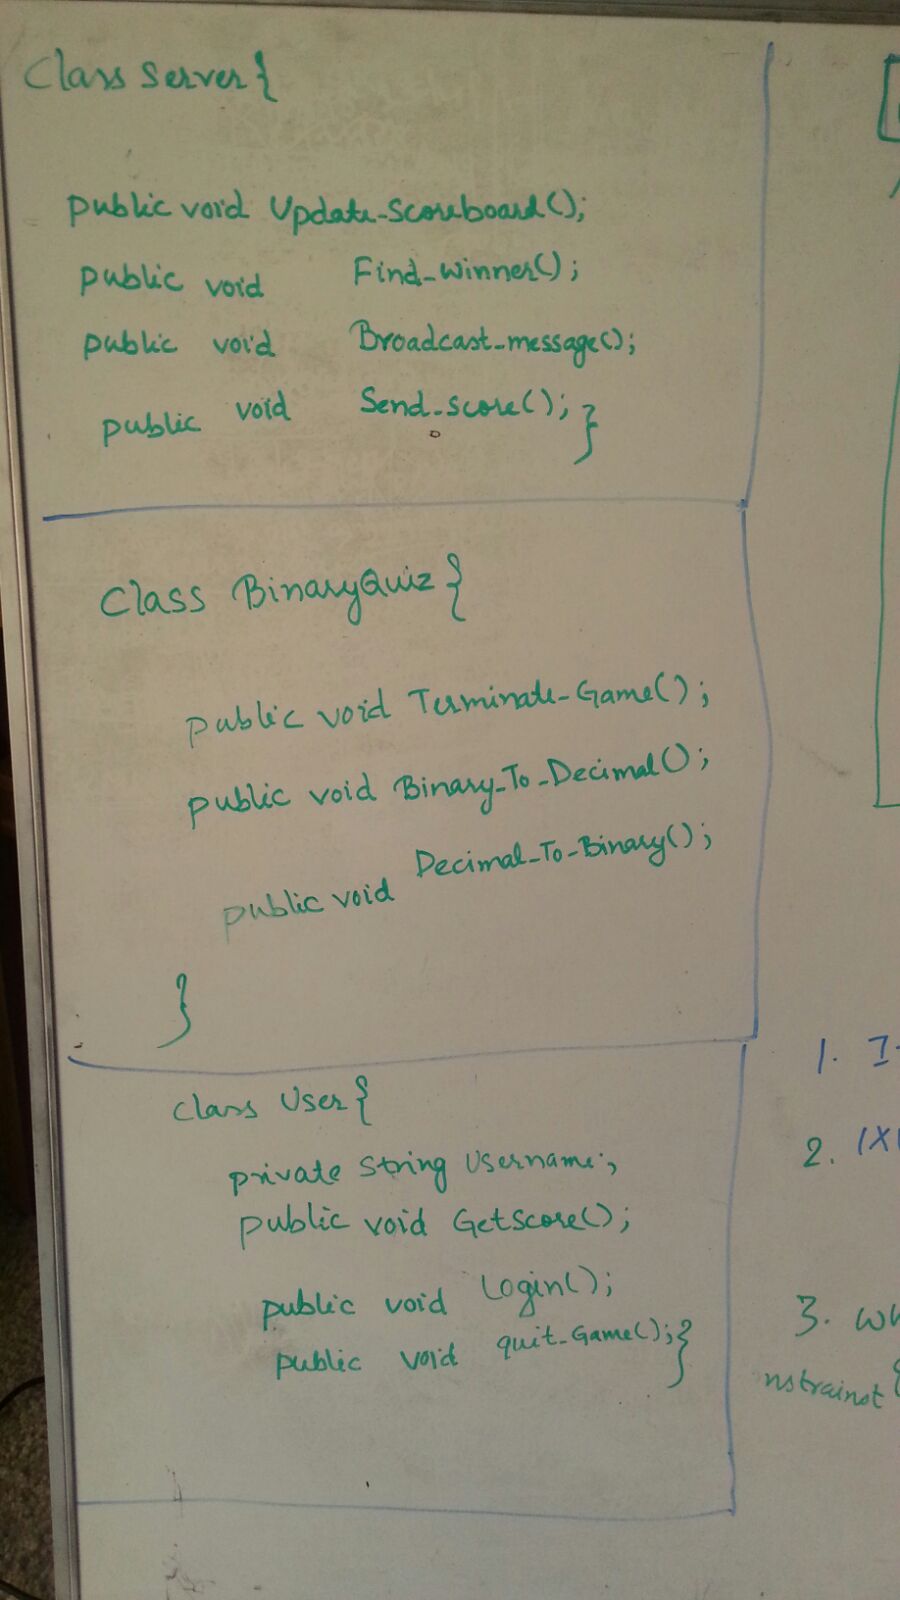 Class Server{
public void Update_Scoreboard();
public void Find_Winner();
public void Broadcast_message();
public void Send_score(); }
Class BinaryQuiz{
public void Terminate_Game();
public void Binary_To_Decimal();
public void Decimal_To_Binary();
}
Class User{
private String Username;
public void GetScore();
public void Login();
public void quit_Game();}
1.
2.
3.
nstrainst